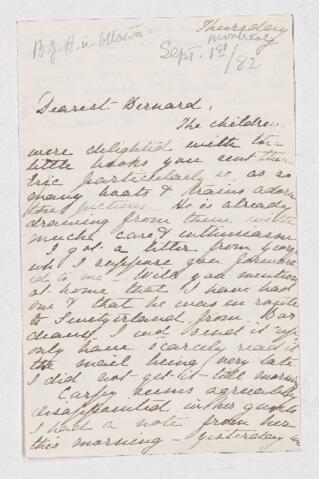 Thursday
B.J.H. in Ottawa.
Montreal
Sept. 1st/82
Dearest Bernard,
The children
were delighted with the
little books you sent them
Eric particularly so, as so
many boats & trains adorn
the pictures. He is already
drawing from them with
much care & enthusiasm
I got a letter from
who I suppose you forward
ed to me - Will you mention
at home that I have had
one & that he was en route
to Switzerland from
I not send it
only have scarcely read it
the mail being very late
I did not get it till morning
Carry seems agreeably
disappointed in her
I had a note from her
this morning - yesterday